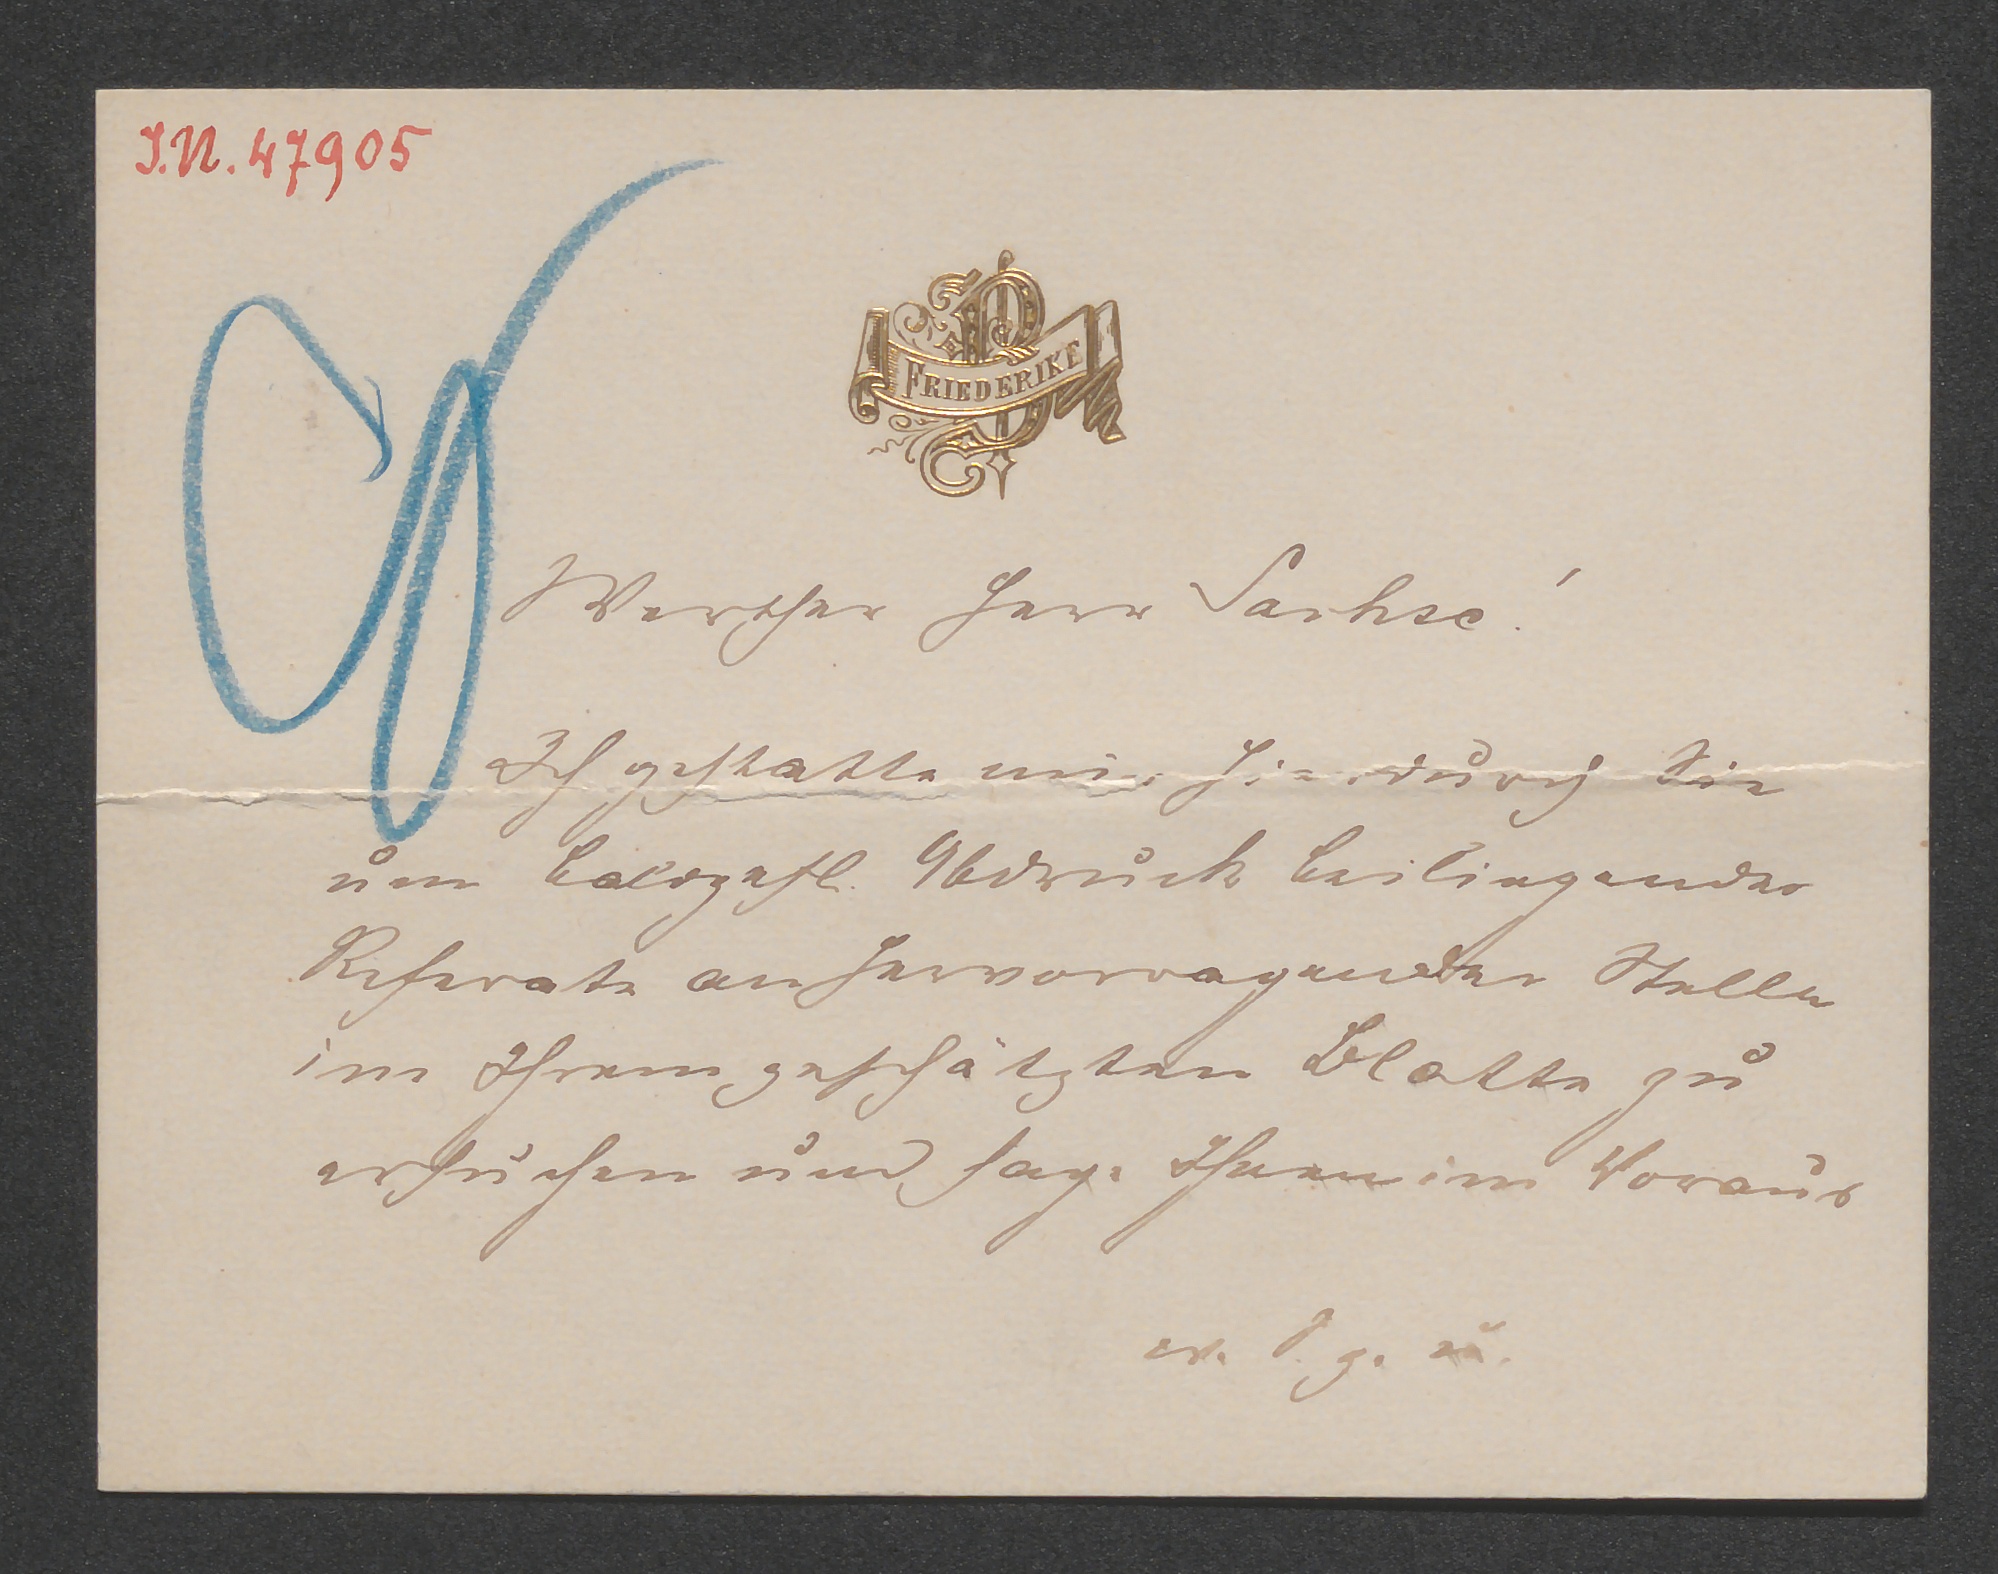 I.N. 47905
FRIEDERIKE
Werther Herr Sachse!
Ich gestatte mir hierdurch Sie
um baldgefl. Abdruck beiliegender
Referate an hervorragender Stelle
im Ihrem geschätzten Blatte zu
ersuchen und sage Ihnen im Voraus